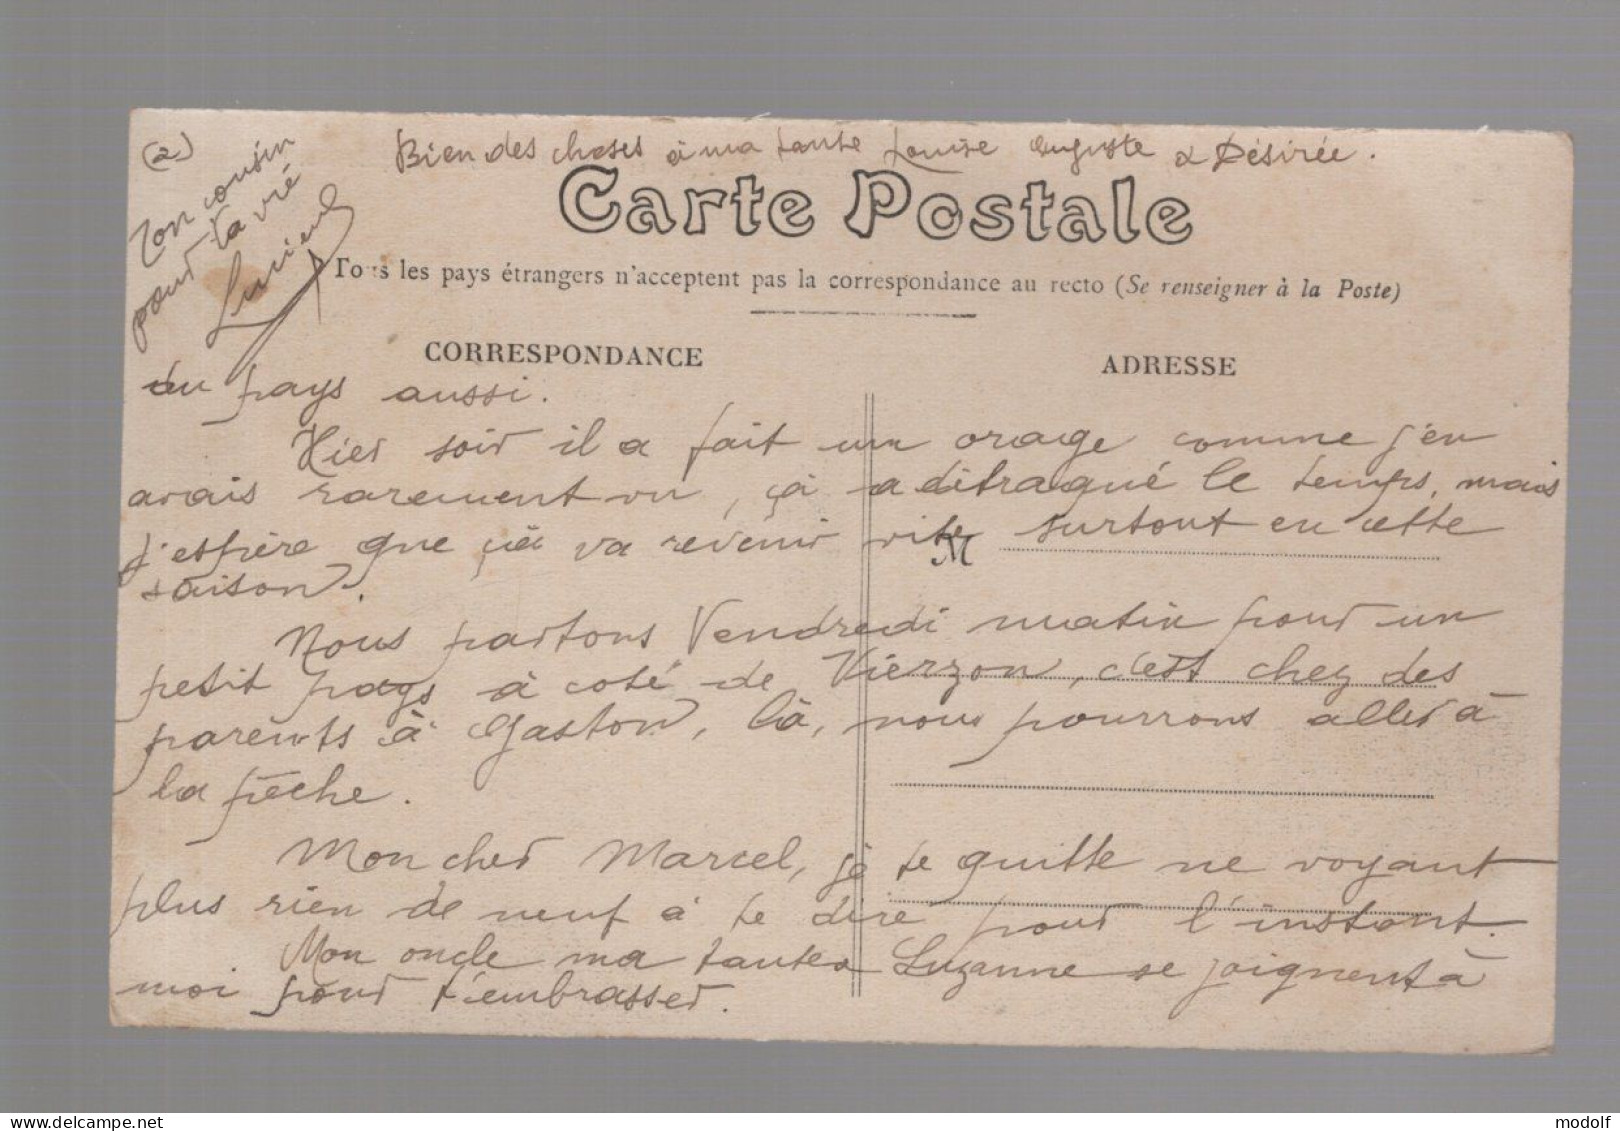 (2)
Bien des choses à ma tante Louise Auguste & Désirée.
Ton cousin
pour la vie
Lucien
Carte Postale
Tous les pays étrangers n'acceptent pas la correspondance au recto (Se renseigner à la Poste)
CORRESPONDANCE
ADRESSE
du pays aussi.
Hier soir il a fait un orage comme j'en
avais rarement vu, çà a détraqué le temps, mais
j'espère que çà va revenir vite surtout en cette
M
saison.
Nous partons Vendredi matin pour un
petit pays à coté de Vierzon, c'est chez des
parents à Gaston, là, nous pourrons aller à
la pêche.
Mon cher Marcel, je te quitte ne voyant
plus rien de neuf à te dire pour l'instant.
Mon oncle ma tante & Suzanne se joignent à
moi pour t'embrasser.
www.delcampe.net
modolf